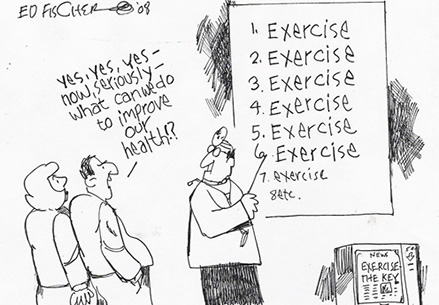 ED FISCHER '08
yes, yes, yes -
now, seriously -
what can we do
to improve
our
health!?
1. Exercise
2. Exercise
3. Exercise
4. Exercise
5. Exercise
6. Exercise
7. exercise
8 etc.
NEWS
EXERCISE
THE KEY